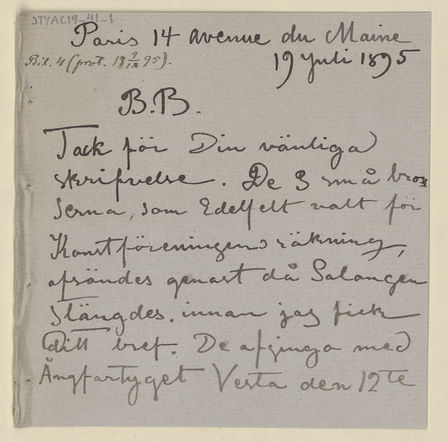 STYAC19-41-1
Paris 14 avenue du Maine
Bil. 4 (prot. 18 9/12 95).
19 Juli 1895
B.B.
Tack för Din vänliga
skrifvelse. De 3 små bron
serna, som Edelfelt valt för
Konstföreningens räkning,
afsändes genast då Salongen
stängdes, innan jag fick
ditt bref. De afgingo med
Ångfartyget Vesta den 12te